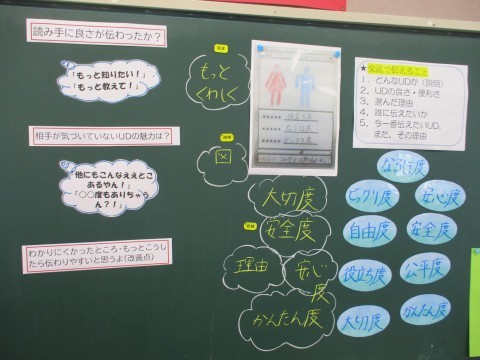 読み手に良さが伝わったか？
「もっと知りたい！」
「もっと教えて！」
相手が気づいていないUDの魅力は？
「他にもこんなええとこ
あるやん！」
「〇〇度もありちゃう
ん？！」
わかりにくかったところ・もっとこうし
たら伝わりやすいと思うよ（改善点）
もっと
くわしく
図
大切度
安全度
理由
安心
度
かんたん度
★交流で伝えること
1．どんなUDか（説明）
2．UDの良さ・便利さ
3．選んだ理由
4．誰に伝えたいか
5．今一番伝えたいUD。
また、その理由
なるほ度
ビックリ度
安心度
自由度
安全度
役立ち度
公平度
大切度
かんたん度